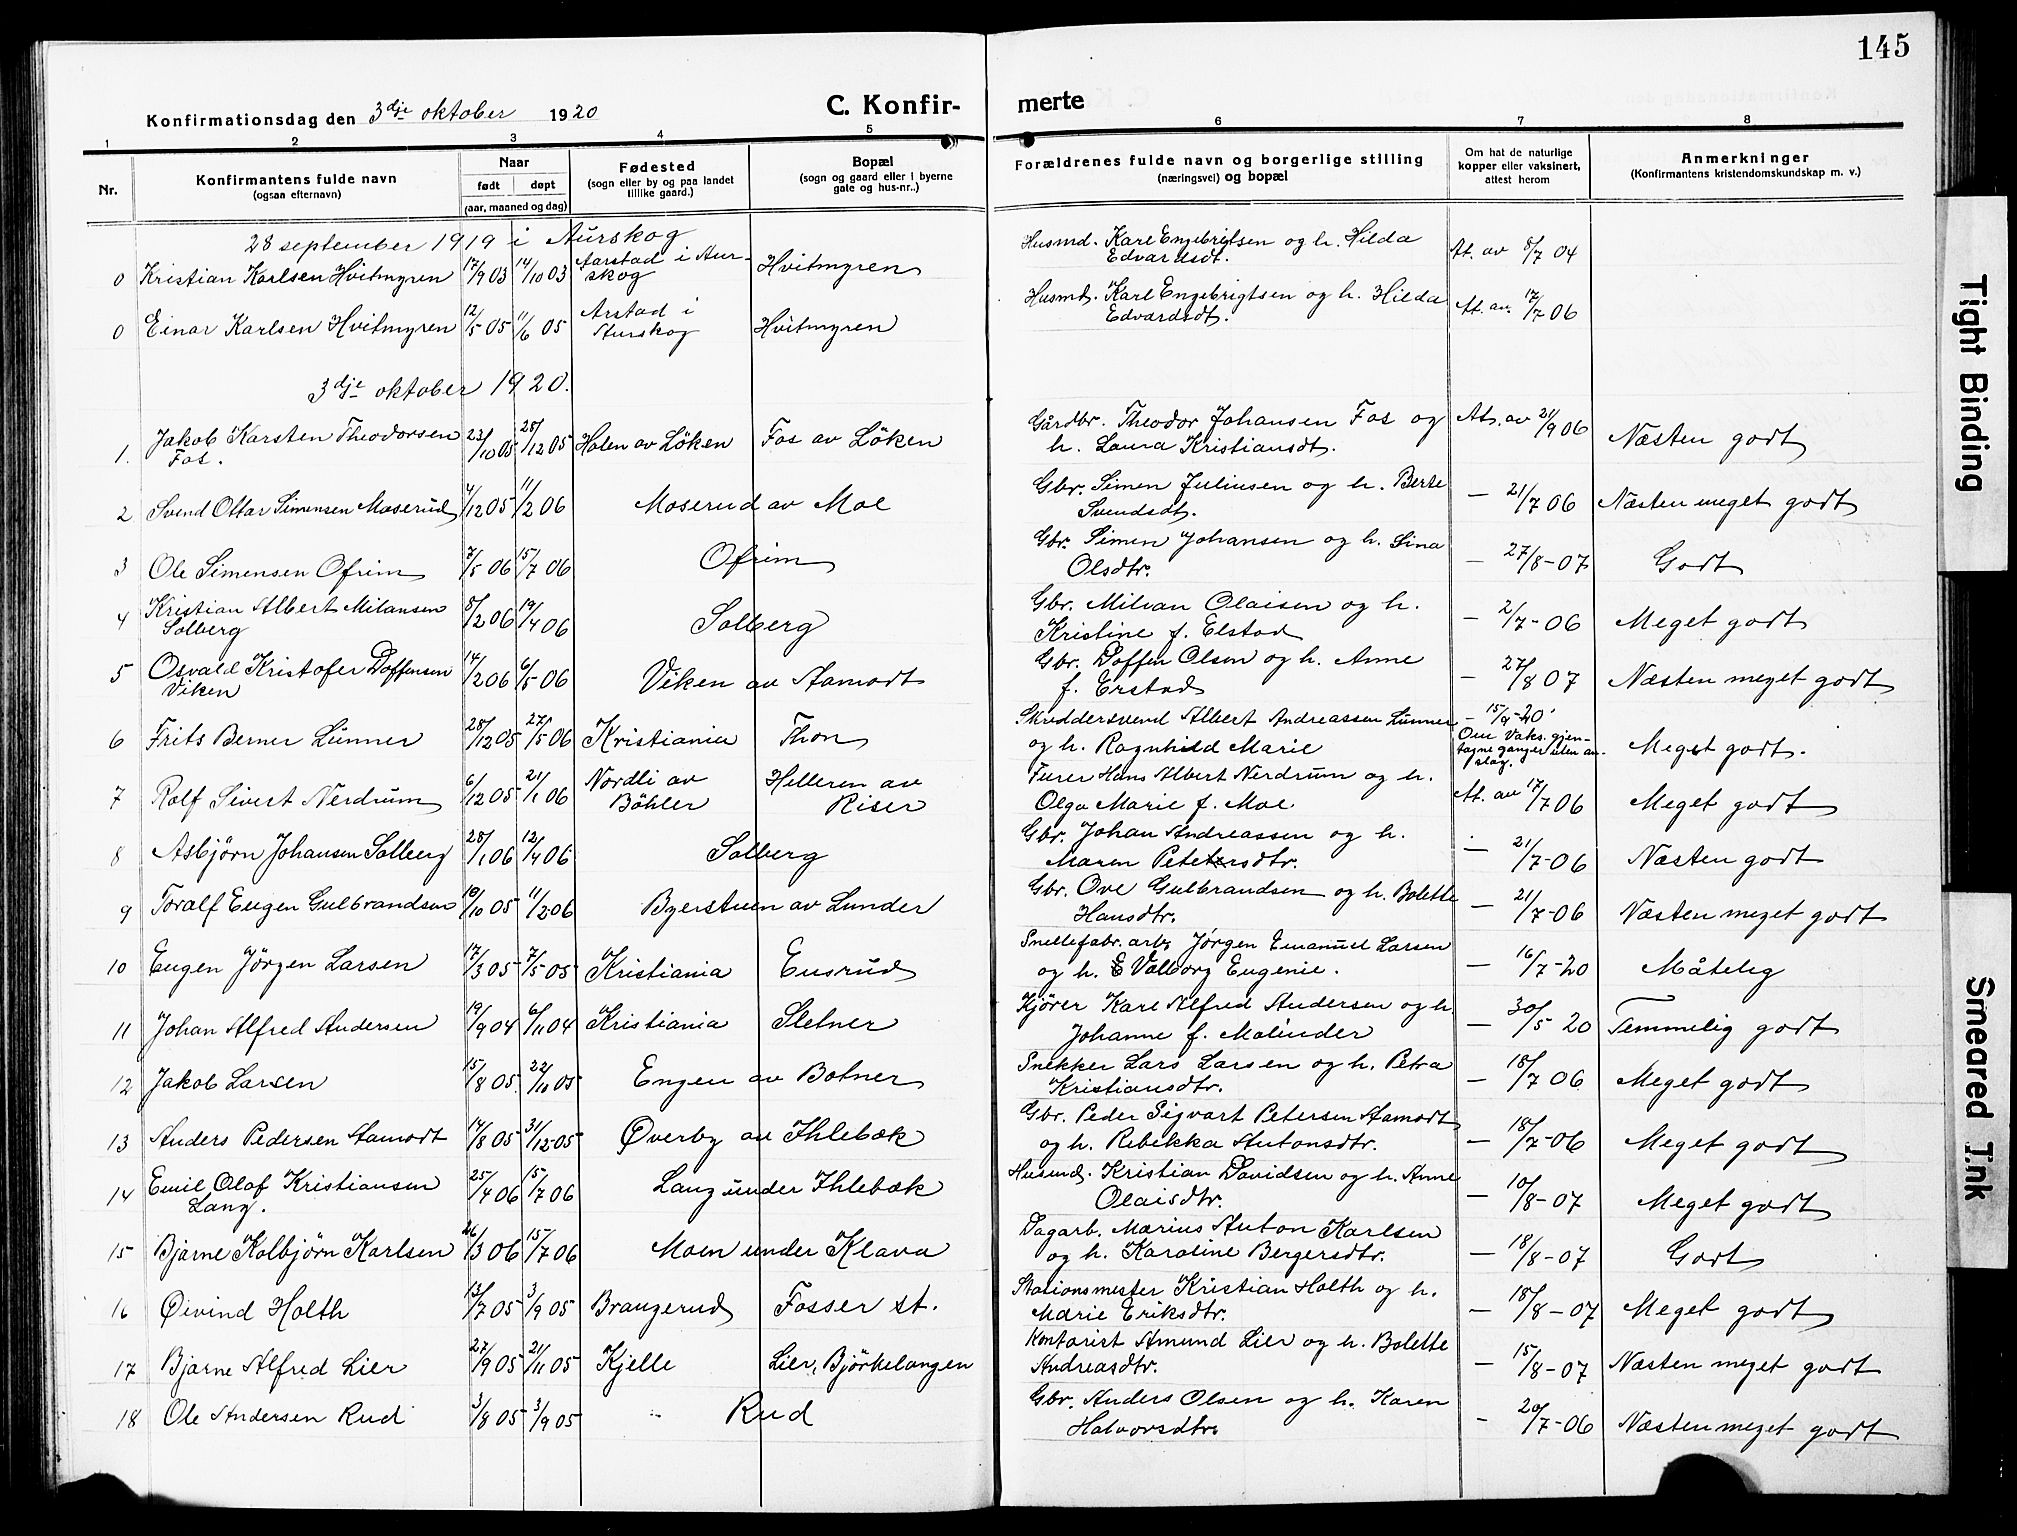 145
Konfirmationsdag den 3dje oktober 1920
C. Konfir-
merte
1 2 3 4 5 6 7 8
Nr.
Konfirmantens fulde navn
(ogsaa efternavn)
Naar
født døpt
(aar, maaned og dag)
Fødested
(sogn eller by og paa landet
tillike gaard.)
Bopæl
(sogn og gaard eller i byerne
gate og hus-nr..)
Forældrenes fulde navn og borgerlige stilling
(næringsvei) og bopæl
Om hat de naturlige
kopper eller vaksinert,
attest herom
Anmerkninger
(Konfirmantens kristendomskundskap m. v.)
28 september 1919 i Aurskog
0 Kristian Karlsen Hvitmyren 17/9 03 14/10 03 Aarstad i Aur-skog Hvitmyren Husmd. Karl Engebritsen og h. Hilda Edvardsdt. At. av 8/7 04
0 Einar Karlsen Hvitmyren 12/5 05 11/6 05 Arstad i Aurskog Hvitmyren Husmd. Karl Engebrigtsen og h. Hilda Edvardsdt. At. av. 17/7 06
3dje oktober 1920.
1. Jakob Karsten Theodorsen Fos. 23/10 05 25/12 05 Holen av Löken Fos av Löken Gårdbr. Theodor Johansen Fos og h. Laura Kristiansdt. At. av 21/9 06 Næsten godt
2 Svend Ottar Simensen Moserud 4/12 05 11/2 06 Moserud av Moe Gbr. Simen Juliusen og h. Berte Svendsdt. — 21/7 06 Næsten meget godt
3 Ole Simensen Ofrim 7/5 06 15/7 06 Ofrim Gbr. Simen Johansen og h. Sina Olsdtr. — 27/8-07 Godt
4 Kristian Albert Milansen Solberg 8/2 06 19/4 06 Solberg Gbr. Milvan Olaisen og h. Kristine f. Elstad — 2/7-06 Meget godt
5 Osvald Kristofer Doffensen Viken 14/2 06 6/5 06 Viken av Aamodt Gbr. Doffen Olsen og h. Anne f. Erstad — 27/8 07 Næsten meget godt
6 Frits Berner Lunner 28/12 05 27/5 06 Kristiania Thon Skreddersvend Albert Andreassen Lunner og h. Ragnhild Marie — 15/9-20 Om Vaks. gjen-tagne ganger uten an-slag. Meget godt.
7 Rolf Sivert Nerdrum 6/12 05 21/1 06 Nordli av Böhler Helleren av Riser Furer Hans Albert Nerdrum og h. Olga Marie f. Moe At. av 17/7 06 Meget godt
8 Asbjörn Johansen Solberg 28/1 06 12/4 06 Solberg Gbr. Johan Andreassen og h. Maren Petersdtr. — 21/7-06 Næsten godt
9 Toralf Eugen Gulbrandsen 19/10 05 11/2-06 Byerstuen av Lunder Gbr. Ove Gulbrandsen og h. Bolette Hansdtr. — 21/7-06 Næsten meget godt
10 Eugen Jörgen Larsen 17/3 05 7/5-05 Kristiania Eusrud Snellefabr. arb. Jörgen Emanuel Larsen og h. Valborg Eugenie. — 16/7-20 Måtelig
11 Johan Alfred Andersen 19/9 04 6/11 04 Kristiania Sletner Kjörer Karl Alfred Andersen og h. Johanne f. Molinder — 30/5 20 Temmelig godt
12 Jakob Larsen 15/8 05 22/11 05 Engen av Botner Snekker Lars Larsen og h. Petra Kristiansdtr. — 18/7 06 Meget godt
13 Anders Pedersen Aamodt 14/8 05 31/12-05 Øverby av Ihlebæk Gbr. Peder Sigvart Petersen Aamodt og h. Rebekka Antonsdtr. — 18/7-06 Meget godt
14 Emil Olaf Kristiansen Lang. 25/4 06 15/7 06 Lang under Ihlebæk Husmd. Kristian Davidsen og h. Anne Olaisdtr. — 10/8-07 Meget godt
15 Bjarne Kolbjörn Karlsen 26/3 06 15/7 06 Moen under Klava Dagarb. Marius Anton Karlsen og h. Karoline Bergersdtr. — 18/8-07 Godt
16 Øivind Holth 13/7 05 3/9 05 Brangerud Fosser st. Stationsmester Kristian Holth og h. Marie Eriksdtr. — 18/8-07 Meget godt
17 Bjarne Alfred Lier 27/9 05 21/11 05 Kjelle Lier, Björkelangen Kontorist Amund Lier og h. Bolette Andreasdtr. — 15/8-07 Næsten meget godt
18 Ole Andersen Rud 3/8 05 3/9 05 Rud Gbr. Anders Olsen og h. Karen Halvorsdtr. — 20/7-06 Næsten meget godt
Tight Binding
Smeared Ink